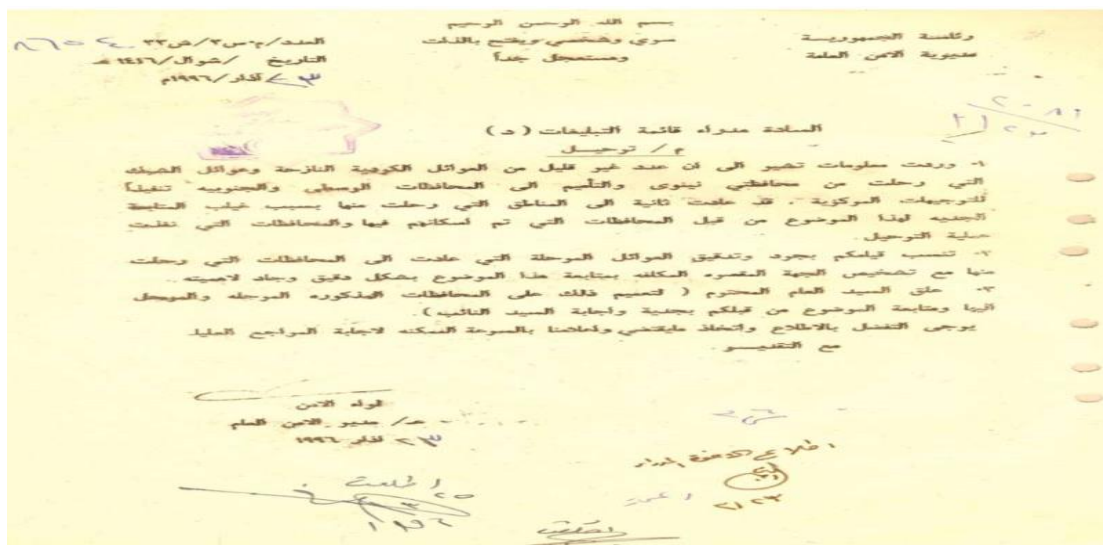 بسم الله الرحمن الرحيم
رئاسة الجمهورية
مديرية الامن العامة
سري وشخصي ويفتح بالذات
ومستعجل جداً
العدد/م.س٣/ش٣٣
التاريخ /شوال/١٤١٦ هـ
٢٣ آذار/١٩٩٦م
السادة مدراء قائمة التبليغات (د)
م/ ترحيل
١- وردت معلومات تشير الى ان عدد غير قليل من العوائل الكردية النازحة وعوائل الشبك
التي رحلت من محافظتي نينوى والتأميم الى المحافظات الوسطى والجنوبيه تنفيذاً
للتوجيهات المركزية . قد عادت ثانية الى المناطق التي رحلت منها بسبب غياب المتابعة
الجديه لهذا الموضوع من قبل المحافظات التي تم اسكانهم فيها والمحافظات التي نفذت
عملية الترحيل.
٢- تنسب قيامكم بجرد وتدقيق العوائل المرحلة التي عادت الى المحافظات التي رحلت
منها مع تشخيص الجهة المقصره المكلفه بمتابعة هذا الموضوع بشكل دقيق وجاد لاهميته .
٣- علق السيد العام المحترم ( لتعميم ذلك على المحافظات المذكوره المرحله والمرحل
اليها ومتابعة الموضوع من قبلكم بجدية واجابة السيد النائب).
يرجى التفضل بالاطلاع واتخاذ مايقتضي واعلامنا بالسرعة الممكنه لاجابة المراجع العليا.
مع التقدير
لواء الامن
ع/ مدير الامن العام
٢٣ آذار ١٩٩٦
اطلعت
١٩٩٦